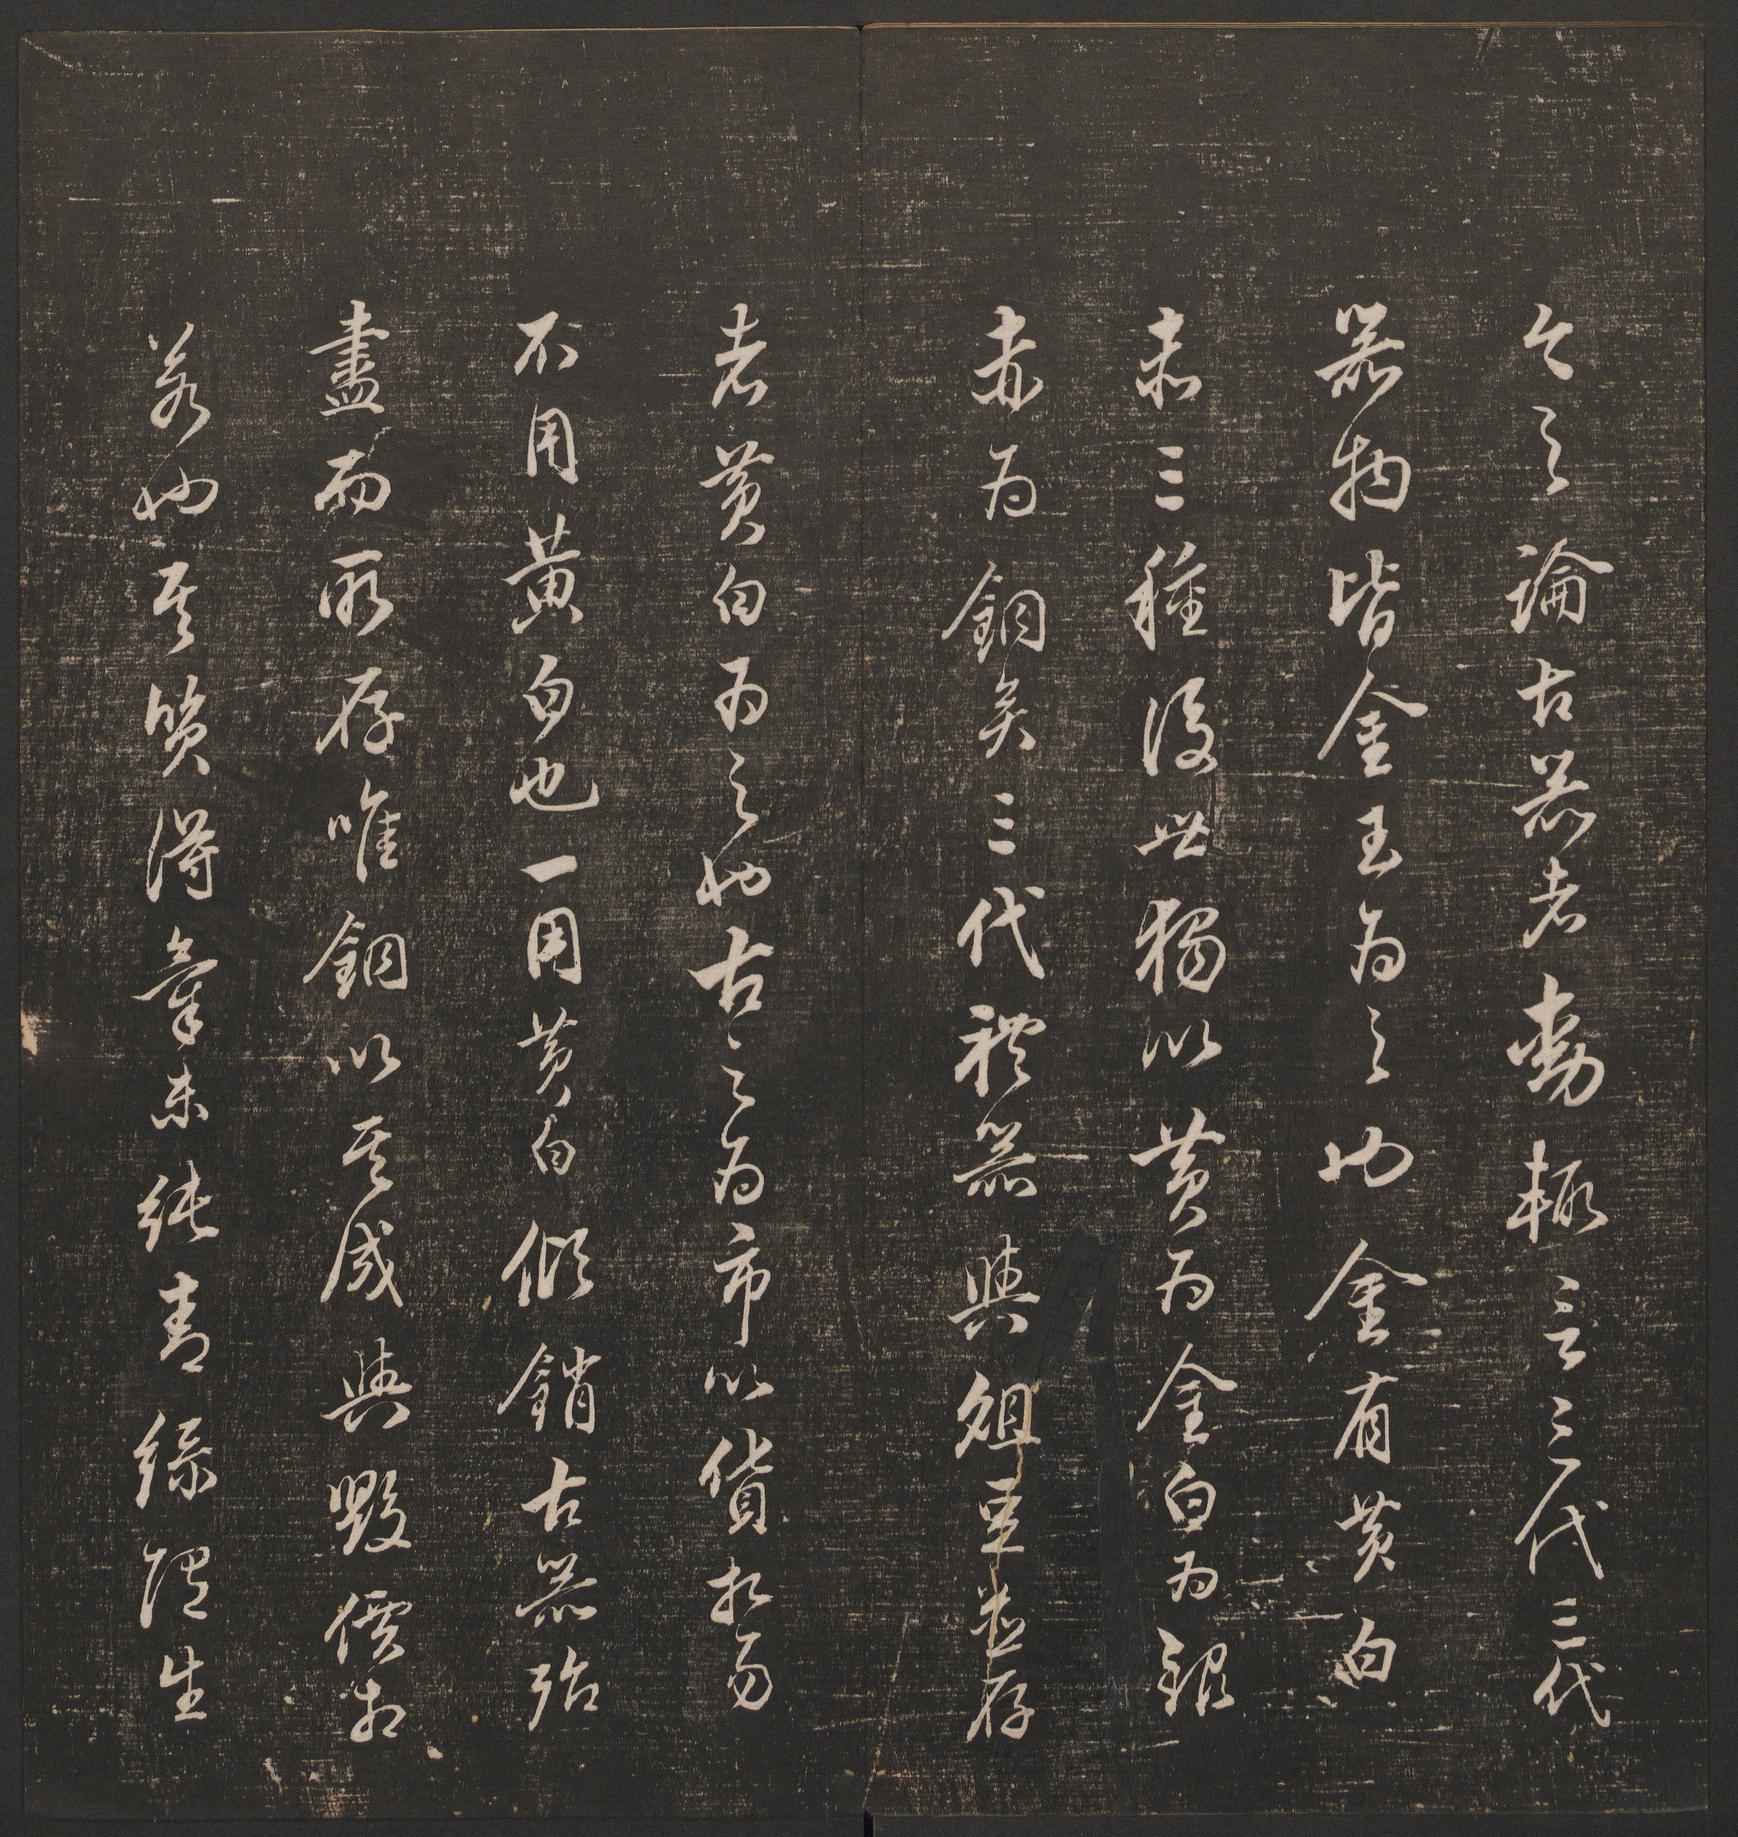 今之論古器者動輒言三代三代
器物皆金玉為之也金有黃白
赤三種後世獨以黃為金白為銀
赤為銅矣三代禮器與俎豆並存
者黃白為之也古之為市以貨相易
不用黃白也一用黃白傾銷古器殆
盡而所存唯銅以其成與毀價相
若也其質得氣未純青綠隱生